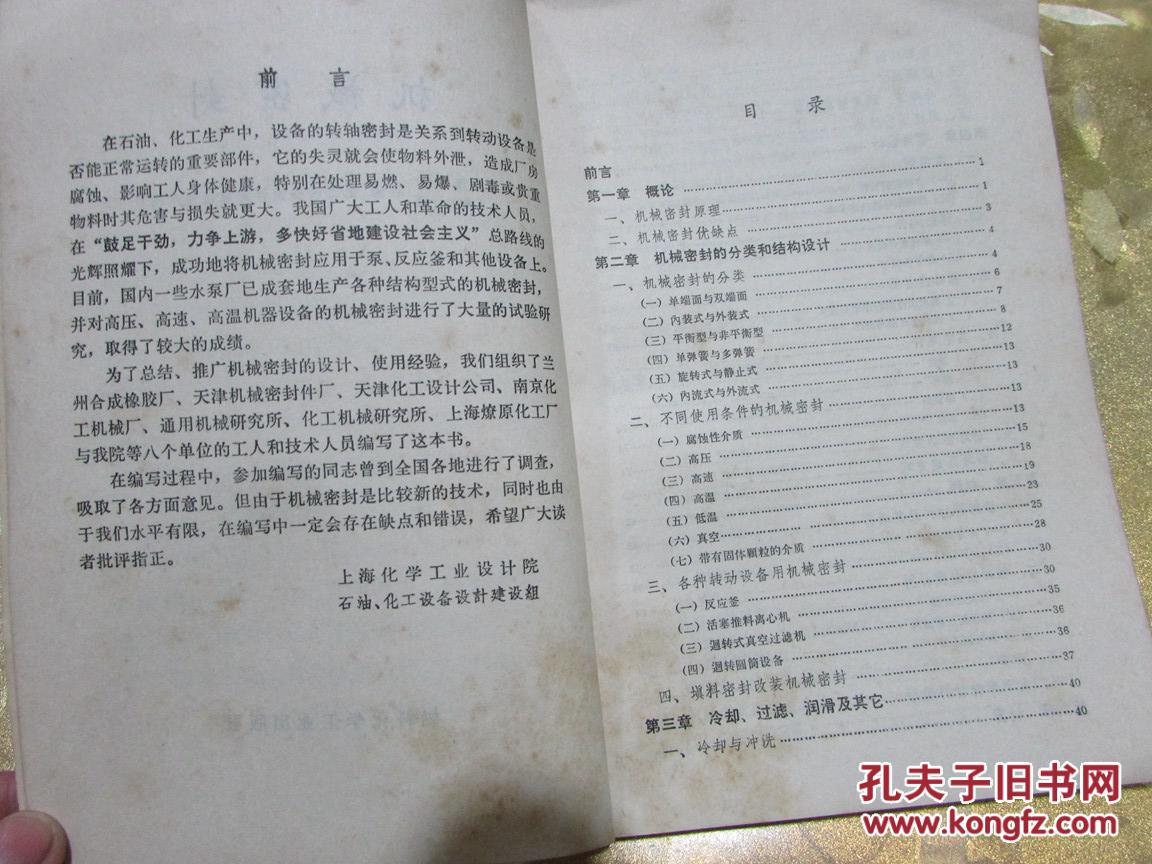 前 言
在石油、化工生产中，设备的转轴密封是关系到转动设备是
否能正常运转的重要部件，它的失灵就会使物料外泄，造成厂房
腐蚀、影响工人身体健康，特别在处理易燃、易爆、剧毒或贵重
物料时其危害与损失就更大。我国广大工人和革命的技术人员，
在“鼓足干劲，力争上游，多快好省地建设社会主义”总路线的
光辉照耀下，成功地将机械密封应用于泵、反应釜和其他设备上。
目前，国内一些水泵厂已成套地生产各种结构型式的机械密封，
并对高压、高速、高温机器设备的机械密封进行了大量的试验研
究，取得了较大的成绩。
为了总结、推广机械密封的设计、使用经验，我们组织了兰
州合成橡胶厂、天津机械密封件厂、天津化工设计公司、南京化
工机械厂、通用机械研究所、化工机械研究所、上海燎原化工厂
与我院等八个单位的工人和技术人员编写了这本书。
在编写过程中，参加编写的同志曾到全国各地进行了调查，
吸取了各方面意见。但由于机械密封是比较新的技术，同时也由
于我们水平有限，在编写中一定会存在缺点和错误，希望广大读
者批评指正。
上海化学工业设计院
石油、化工设备设计建设组
目 录
前言
第一章 概论 …… 1
一、机械密封原理 …… 1
二、机械密封优缺点 …… 3
第二章 机械密封的分类和结构设计 …… 4
一、机械密封的分类 …… 4
（一）单端面与双端面 …… 6
（二）内装式与外装式 …… 7
（三）平衡型与非平衡型 …… 8
（四）单弹簧与多弹簧 …… 12
（五）旋转式与静止式 …… 13
（六）内流式与外流式 …… 13
二、不同使用条件的机械密封 …… 13
（一）腐蚀性介质 …… 13
（二）高压 …… 15
（三）高速 …… 18
（四）高温 …… 19
（五）低温 …… 23
（六）真空 …… 25
（七）带有固体颗粒的介质 …… 28
三、各种转动设备用机械密封 …… 30
（一）反应釜 …… 30
（二）活塞推料离心机 …… 35
（三）迴转式真空过滤机 …… 36
（四）迴转圆筒设备 …… 36
四、填料密封改装机械密封 …… 37
第三章 冷却、过滤、润滑及其它 …… 40
一、冷却与冲洗 …… 40
孔夫子旧书网
www.kongfz.com